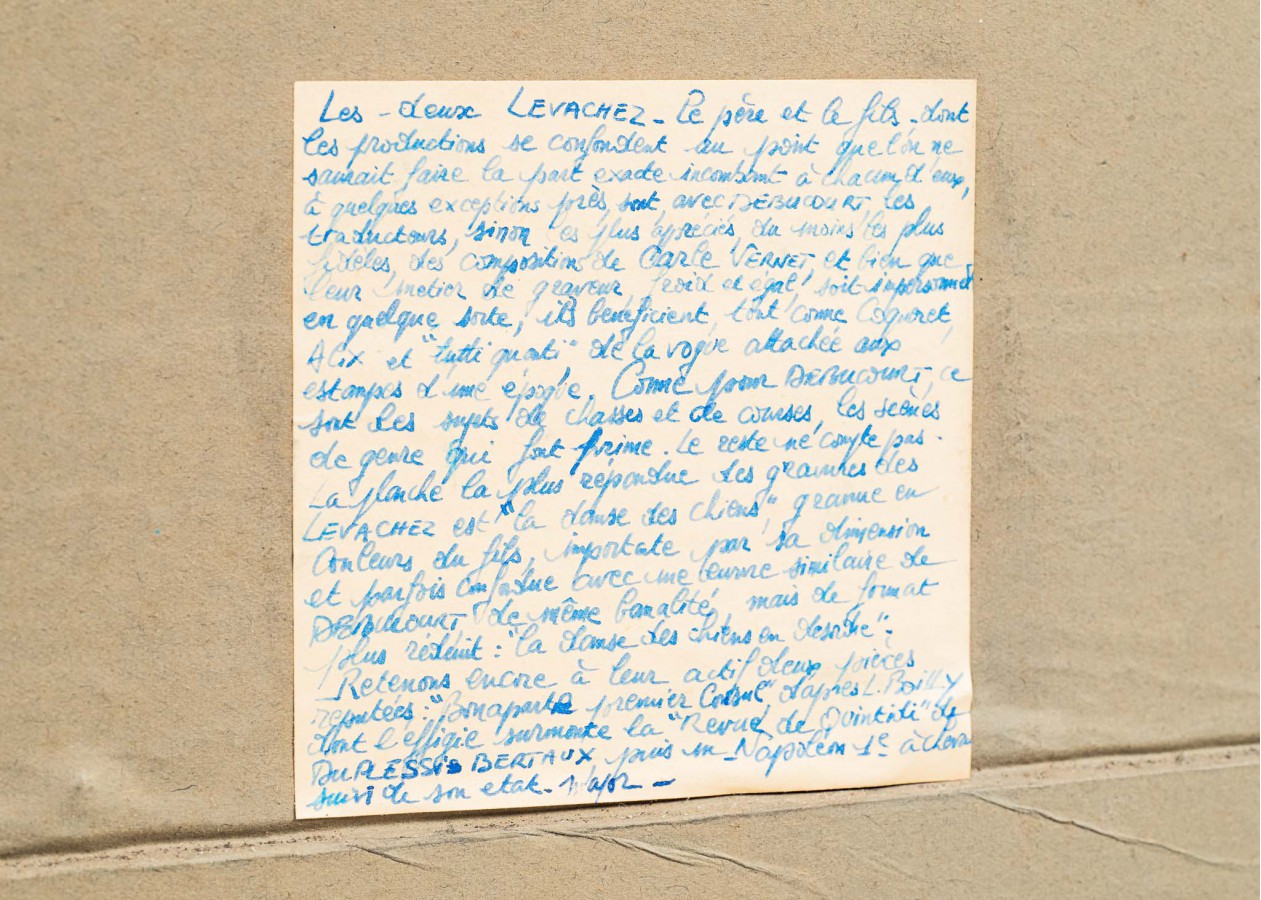 Les - deux LEVACHEZ - Le père et le fils - dont
les productions se confondent au point que l'on ne
saurait faire la part exacte incombant à chacun d'eux,
à quelques exceptions près sont avec DEBUCOURT les
traducteurs, sinon les plus appréciés, du moins les plus
fidèles, des compositions de Carle VERNET, et bien que
leur métier de graveur, froid et égal soit impersonnel
en quelque sorte, ils bénéficient, tout comme Coqueret,
Alix et "tutti quanti" de la vogue attachée aux
estampes d'une époque. Comme pour DEBUCOURT, ce
sont les sujets de chasses et de courses, les scènes
de genre qui font prime. Le reste ne compte pas.
La planche la plus répondue des gravures des
LEVACHEZ est "la danse des chiens", gravure en
Couleurs du fils, importate par sa dimension
et parfois confondue avec une œuvre similaire de
DEBUCOURT de même banalité, mais de format
plus réduit : "la danse des chiens en desordre".
Retenons encore à leur actif deux pièces
reputées : "Bonaparte premier Consul" d'après L. Boilly
dont l'effigie surmonte la "Revue de Quintidi" de
DUPLESSIS BERTAUX puis un Napoléon 1e à cheval
suivi de son etat-major -